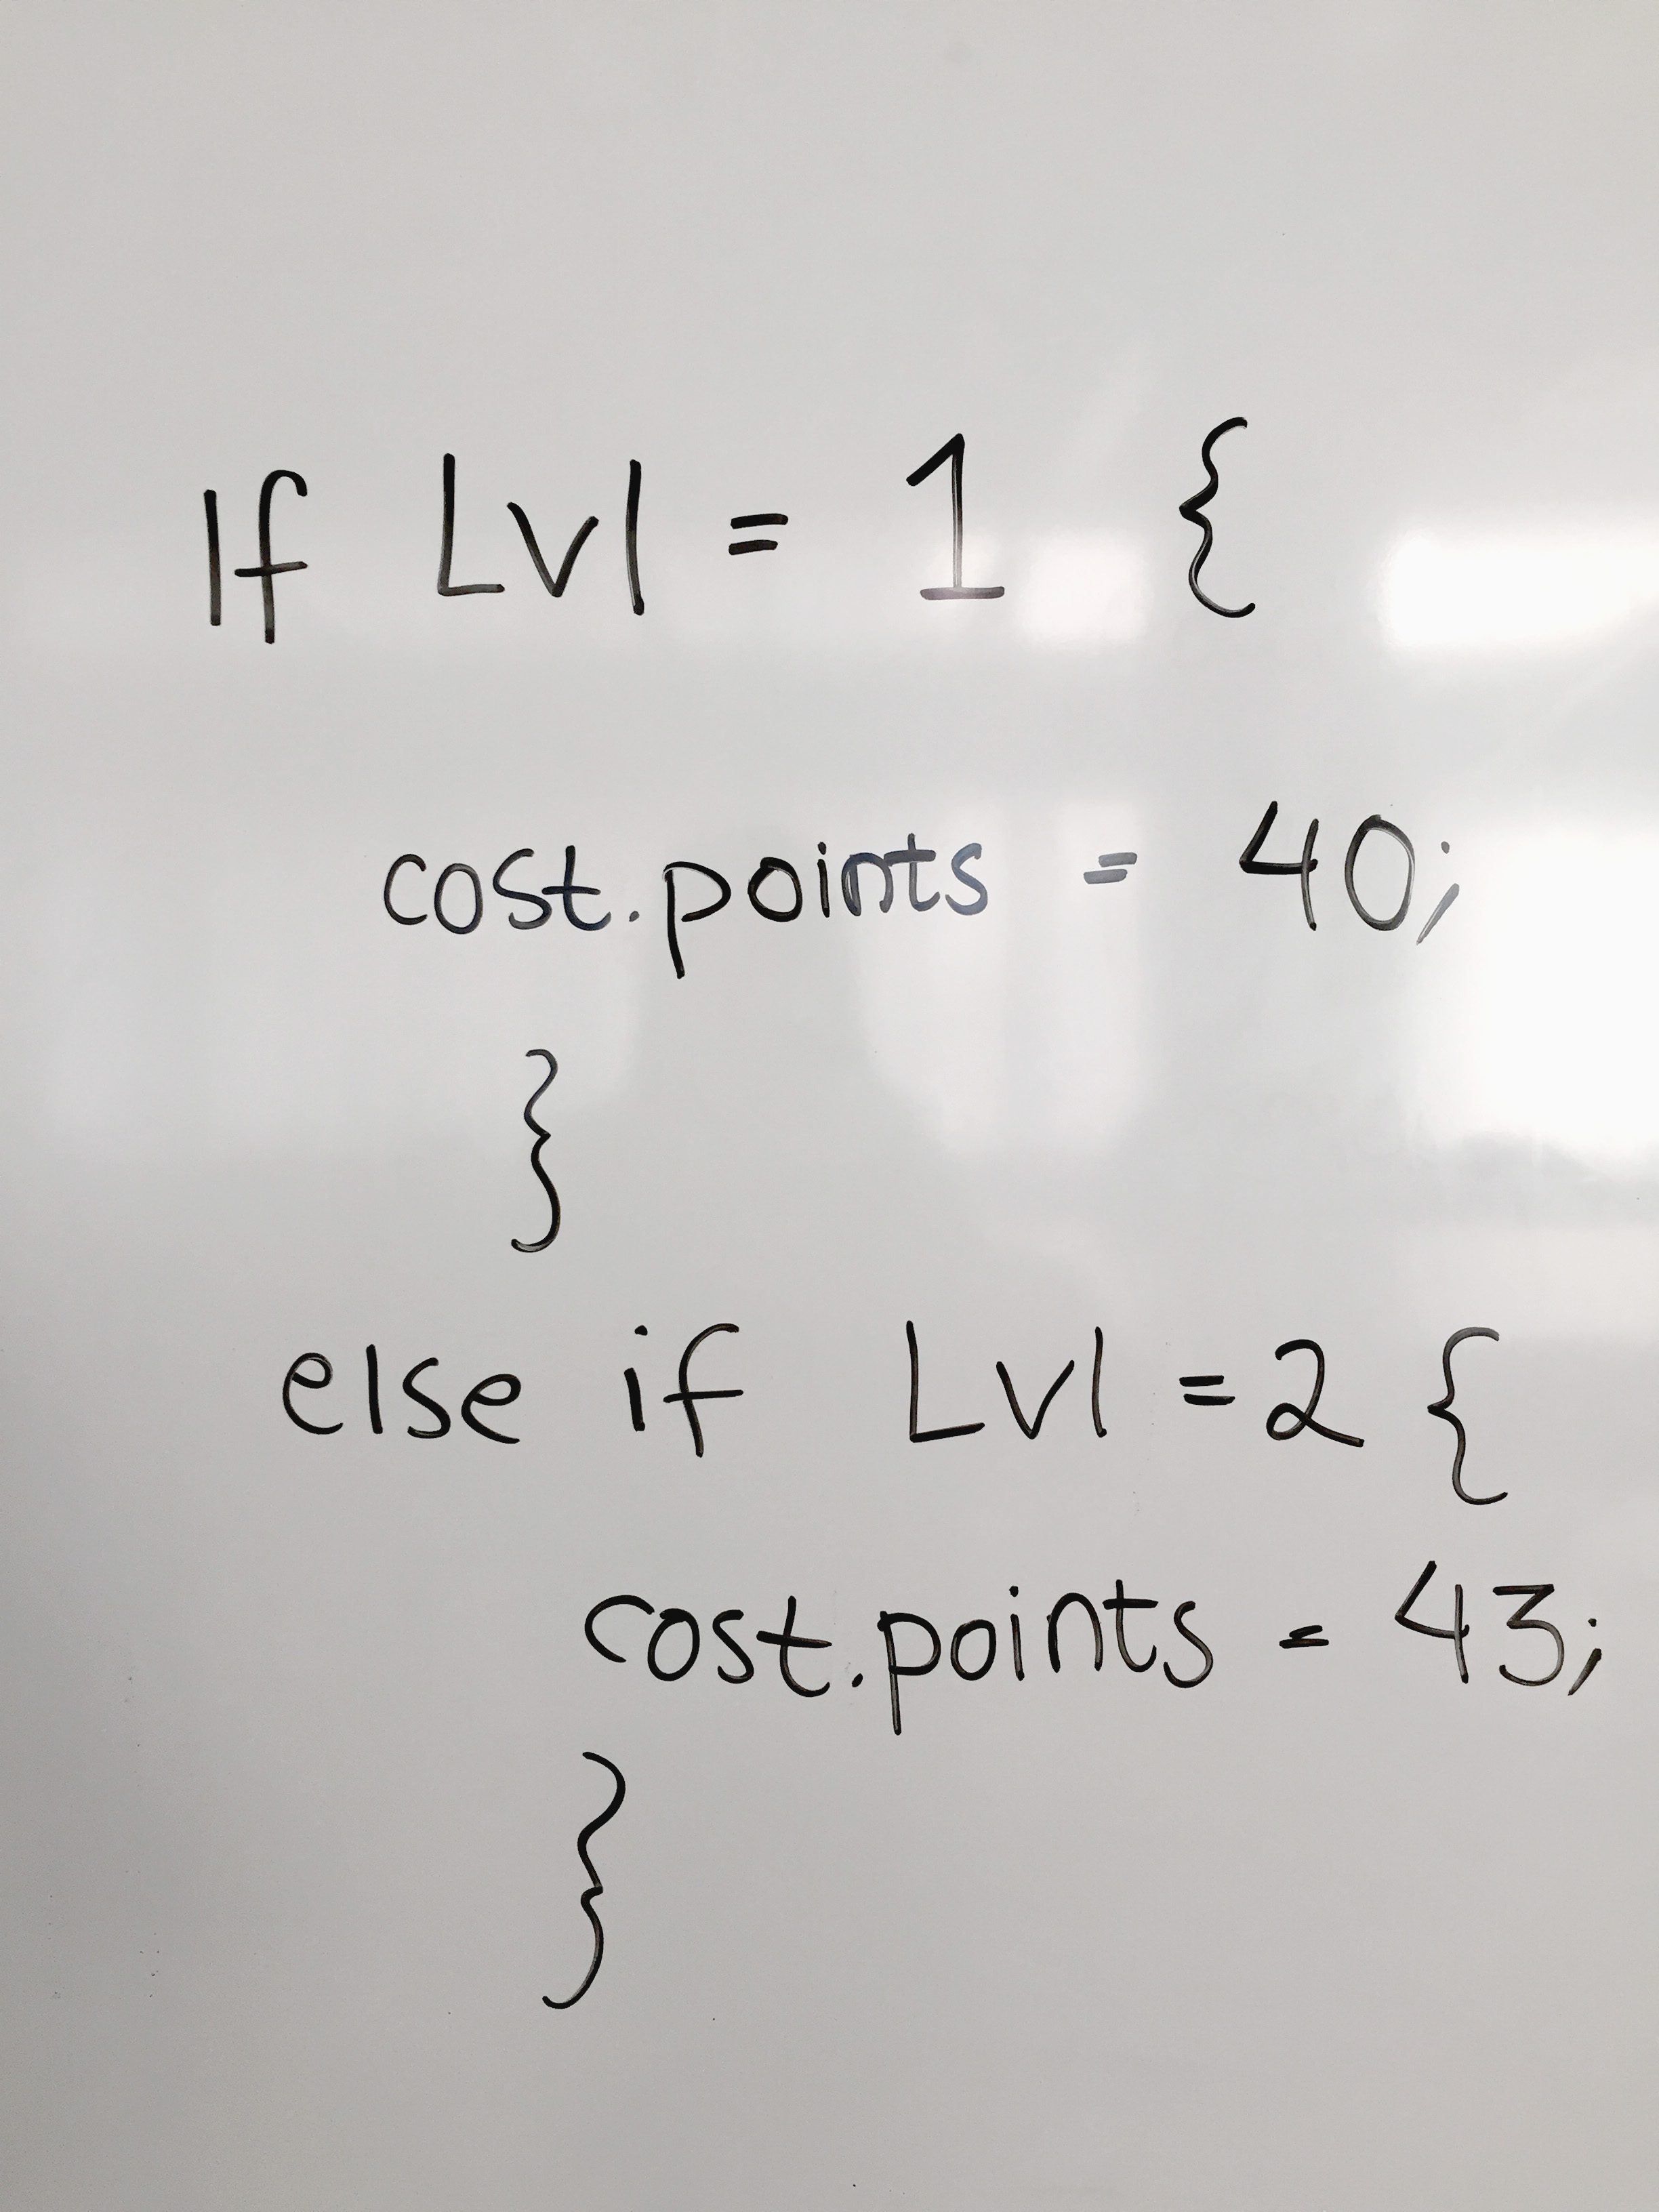 If Lvl = 1 {
cost.points = 40;
}
else if Lvl = 2 {
cost.points = 43;
}